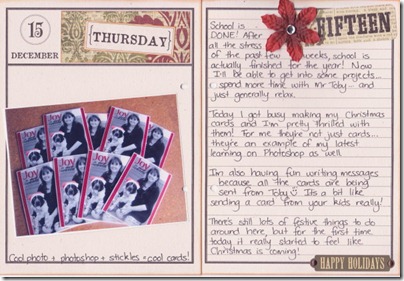 15
DECEMBER
THURSDAY
Joy
Joy
Joy
Joy
Cool photo + photoshop + stickles = cool cards!
FIFTEEN
School is ....
DONE! After
all the stress
of the past few weeks, school is
actually finished for the year! Now
I'll be able to get into some projects...
spend more time with Mr Toby... and
just generally relax.
Today I got busy making my Christmas
cards and I'm pretty thrilled with
them! For me they're not just cards...
they're an example of my latest
learning on Photoshop as well.
I'm also having fun writing messages
because all the cards are being
sent from Toby! It's a bit like
sending a card from your kids really!
There's still lots of festive things to do
around here, but for the first time
today it really started to feel like
Christmas is coming!
HAPPY HOLIDAYS